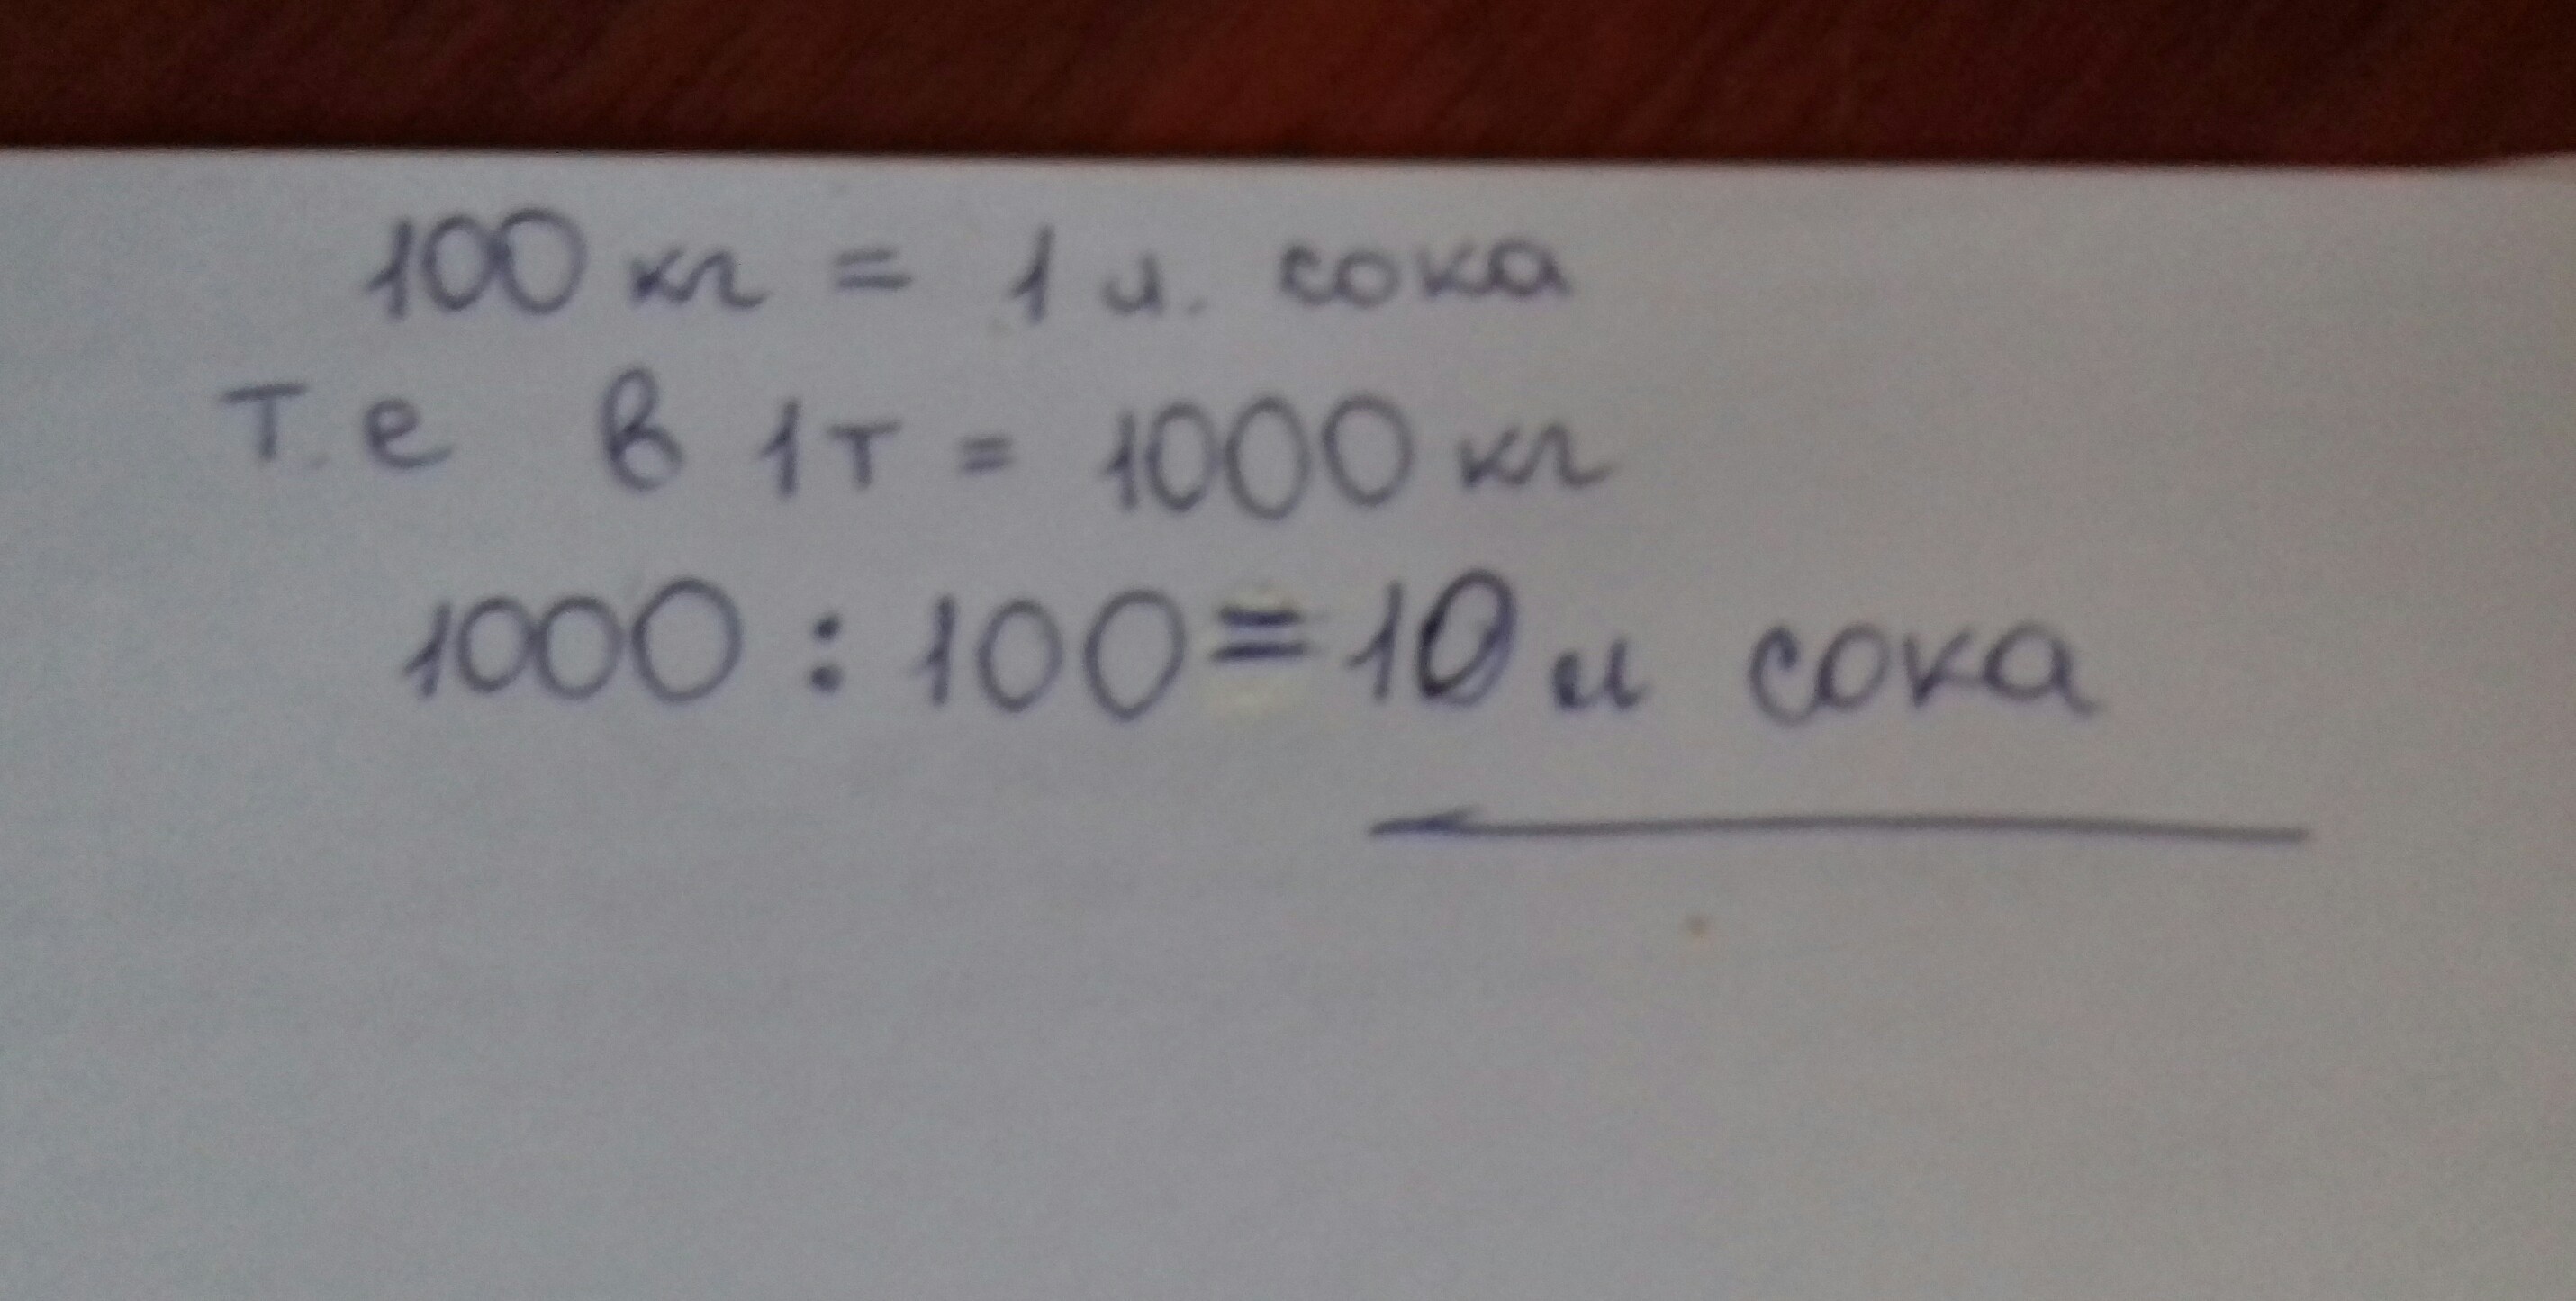 100 кг = 1 л. сока
т.е в 1т = 1000 кг
1000 : 100 = 10 л сока